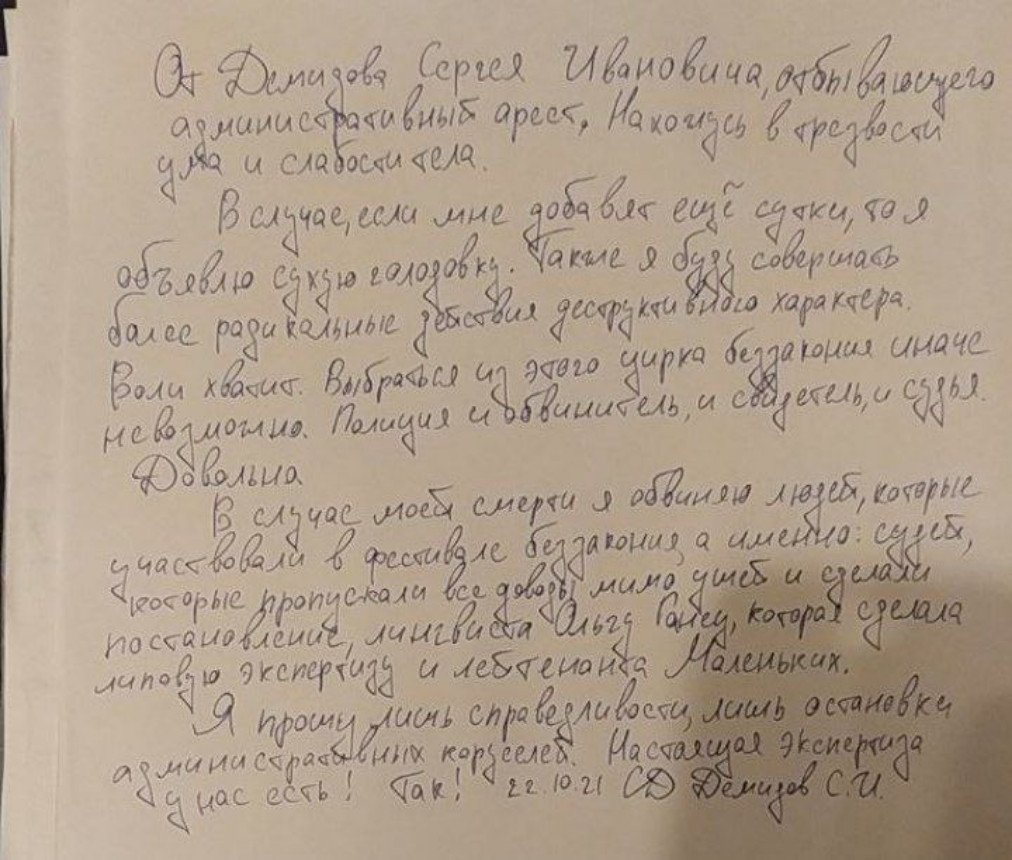 От Демидова Сергея Ивановича, отбывающего
административный арест. Нахожусь в трезвости
ума и слабости тела.
В случае, если мне добавят ещё сутки, то я
объявлю сухую голодовку. Также я буду совершать
более радикальные действия деструктивного характера.
Воли хватит. Выбраться из этого цирка беззакония иначе
невозможно. Полиция и обвинитель, и свидетель, и судья.
Довольна
В случае моей смерти я обвиняю людей, которые
участвовали в фестивале беззакония, а именно: судей,
которые пропускали все доводы мимо ушей и сделали
постановление, лингвиста Ольгу, которая сделала
липовую экспертизу и лейтенанта Маленьких.
Я прошу лишь справедливости, лишь остановки
административных каруселей. Настоящая экспертиза
у нас есть! Так! 22.10.21 СД Демидов С.И.